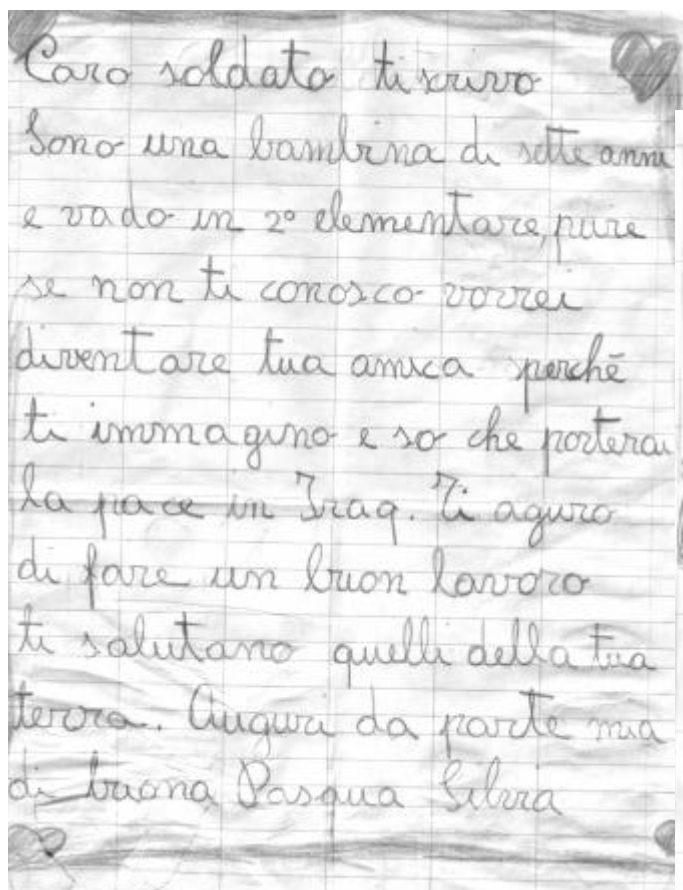 Caro soldato ti scrivo
Sono una bambina di sette anni
e vado in 2° elementare, pure
se non ti conosco vorrei
diventare tua amica perché
ti immagino e so che porterai
la pace in Iraq. Ti aguro
di fare un buon lavoro
ti salutano quelli della tua
terra. Auguri da parte mia
di buona Pasqua Silvia